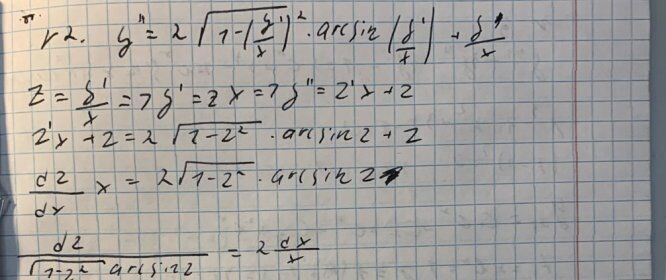 √2. y'' = 2 √(1-(y'/x)²) · arcsin (y'/x) + y'/x
z = y'/x => y' = zx => y'' = z'x + z
z'x + z = 2 √(1-z²) · arcsin z + z
dz/dx x = 2√(1-z²) · arcsin z
dz/(√(1-z²) arcsin z) = 2 dx/x